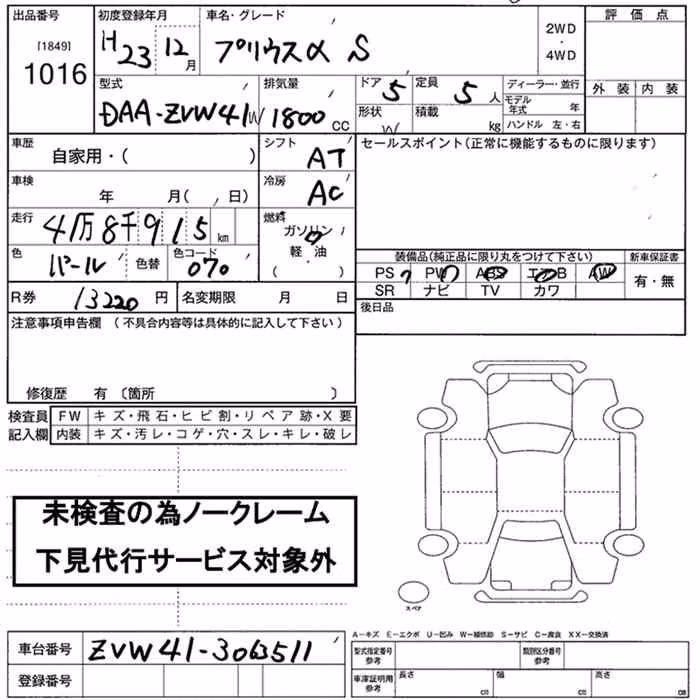 出品番号 初度登録年月 車名・グレード 評価点
[1849]
1016
H 23 12月 プリウスα S
2WD
・
4WD
外装 内装
型式 排気量 ドア 定員 ディーラー・並行
DAA-ZVW41W 1800CC 5 5人
モデル年式 年
形状 W 積載 kg ハンドル 左・右
車歴 シフト セールスポイント(正常に機能するものに限ります)
自家用・( ) AT
車検 冷房
年 月( 日) AC
走行 燃料
4万8千915km ガソリン
軽・油
( )
色 色替 色コード
パール 070
装備品(純正品に限り丸をつけて下さい) 新車保証書
PS PW ABS エアB AW 有・無
SR ナビ TV カワ
R券 13220円 名変期限 月 日
後日品
注意事項申告欄 (不具合内容等は具体的に記入して下さい)
修復歴 有 〔箇所 〕
検査員 FW キズ・飛石・ヒビ割・リペア跡・X要
記入欄 内装 キズ・汚レ・コゲ・穴・スレ・キレ・破レ
未検査の為ノークレーム
下見代行サービス対象外
スペア
A-キズ E-エクボ U-凹み W-補修跡 S-サビ C-腐食 XX-交換済
車台番号 ZVW41-3063511
型式指定番号 参考 類別区分番号 参考
登録番号
車庫証明用 参考 長さ cm 幅 cm 高さ cm